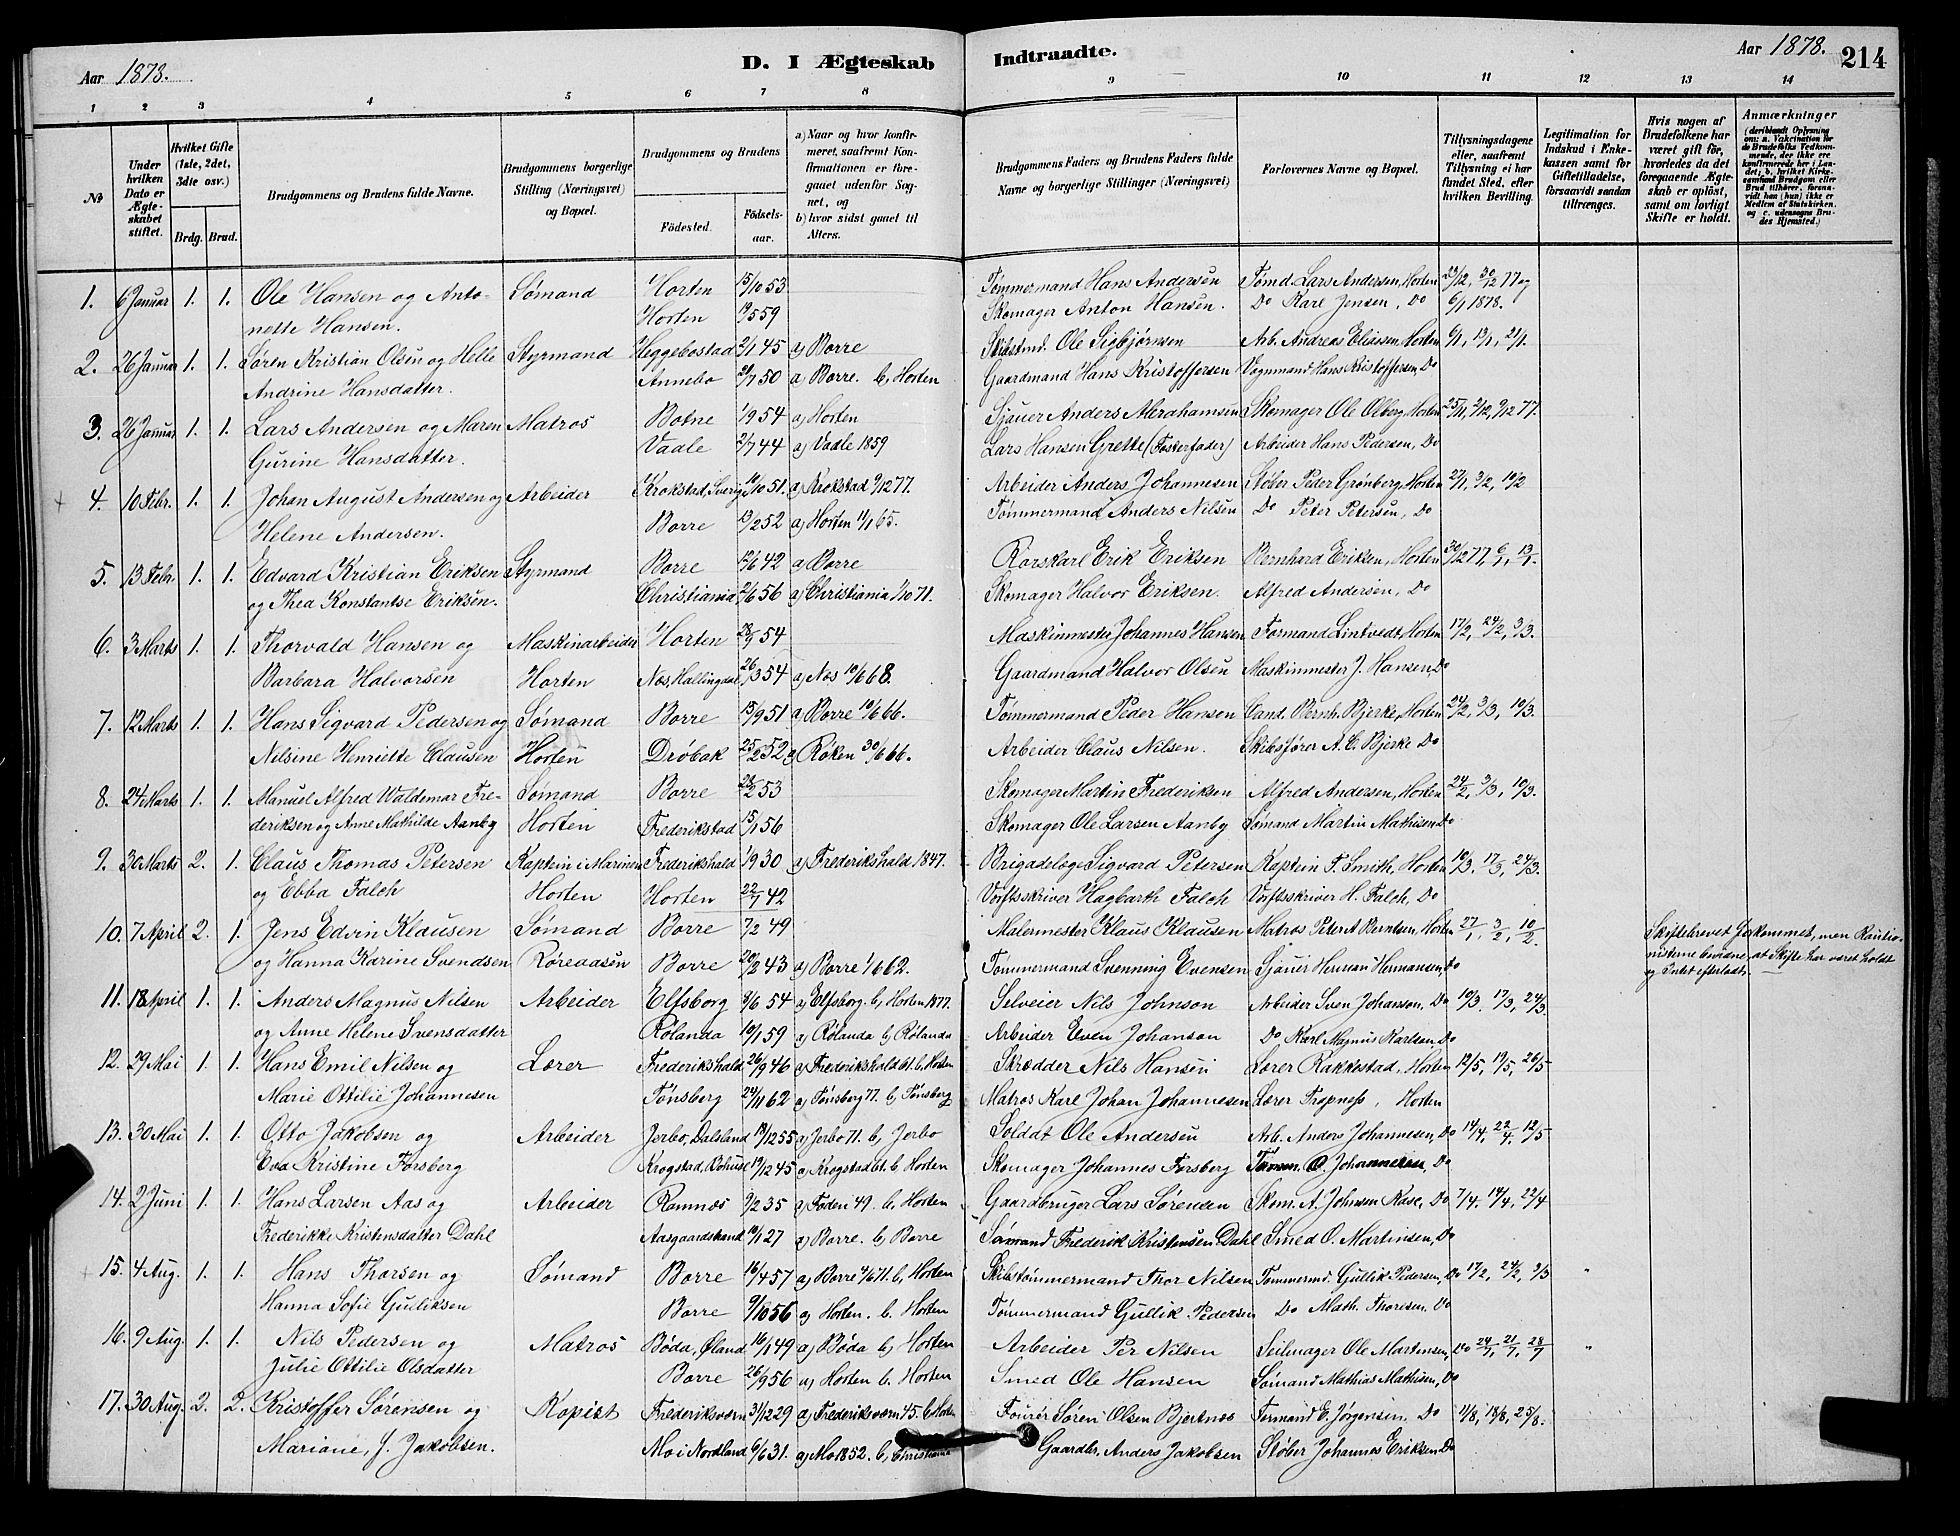 Aar 1878.
D. I Ægteskab
Indtraadte.
Aar 1878.
214
1 2 3 4 5 6 7 8 9 10 11 12 13 14
No
Under hvilken Dato er Ægteskabet stiftet.
Hvilket Gifte (1ste, 2det, 3die osv.)
Brdg. Brud.
Brudgommens og Brudens fulde Navne.
Brudgommens borgerlige Stilling (Næringsvei) og Bopæl.
Brudgommens og Brudens
Födested.
Födselsaar.
a) Naar og hvor konfirmeret, saafremt Konfirmationen er foregaaet udenfor Sognet, og
b) hvor sidst gaaet til Alters.
Brudgommens Faders og Brudens Faders fulde Navne og borgerlige Stillinger (Næringsvei)
Forlovernes Navne og Bopæl.
Tillysningsdagene eller, saafremt Tillysning ei har fundet Sted, efter hvilken Bevilling.
Legitimation for Indskud i Enkekassen samt for Giftetilladelse, forsaavidt saadan tiltrænges.
Hvis nogen af Brudefolkene har været gift för, hvorledes da det foregaaende Ægteskab er oplöst, samt om lovligt Skifte er holdt.
Anmærkninger
(deriblandt Oplysning om: a. Vakcination for de Brudefolks Vedkommende, der ikke ere konfirmerede her i Landet; b. hvilket Kirkesamfund Brudgom eller Brud tilhører, forsaavidt han (hun) ikke er Medlem af Statskirken, og c. udensogns Brudes Hjemsted.)
1. 6 Januar 1. 1. Ole Hansen og Anto- Sømand Horten 15/10 53 Tømmermand Hans Andersen Tømd. Lars Andersen, Horten 23/12, 30/12 77 og
nette Hansen. Horten 19/5 59 Skomager Anton Hansen. Do Karl Jensen, Do 6/1 1878.
2. 26 Januar 1. 1. Søren Kristian Olsen og Helle Styrmand Heggebostad 2/1 45 a) Borre Skibstmd. Ole Sigbjørnsen Arb. Andreas Eliassen, Horten 6/1, 13/1, 21/1.
Andrine Hansdatter. Annebo 21/7 50 a) Borre. b, Horten Gaardmand Hans Kristoffersen Vognmand Hans Kristoffersen, Do
3. 26 Januar 1. 1. Lars Andersen og Maren Matros Botne 1/9 54 a) Horten Sjauer Anders Abrahamsen Skomager Ole Olberg, Horten 25/11, 2/12, 9/12 77.
Gurine Hansdatter. Vaale 2/7 44 a) Vaale 1859 Lars Hansen Grette (Fosterfader) Arbeider Hans Pedersen, Do
4. 10 Febr. 1. 1. Johan August Andersen og Arbeider Krokstad, Sverig 10/10 51. a) Krokstad 9/12 77. Arbeider Anders Johannesen Støber Peder Grønberg, Horten 27/1, 3/2, 10/2
Helene Andersen. Borre 13/2 52 a) Horten 11/1 65. Tømmermand Anders Nilsen Do Peter Petersen, Do
5. 13 Febr. 1. 1. Edvard Kristian Eriksen Styrmand Borre 12/6 42 a) Borre Rorskarl Erik Eriksen Bernhard Eriksen, Horten 30/12 77, 6/1, 13/1.
og Thea Konstantse Eriksen. Christiania 2/6 56 a) Christiania 1/10 71. Skomager Halvor Eriksen. Alfred Andersen, Do
6. 3 Marts 1. 1. Thorvald Hansen og Maskinarbeider Horten 28/9 54 Maskinmester Johannes Hansen Formand Lintvedt, Horten 17/2, 24/2, 3/3.
Barbara Halvorsen Horten Næs, Hallingdal 26/3 54 a) Næs 10/6 68. Gaardmand Halvor Olsen Maskinmester J. Hansen, Do
7. 12 Marts 1. 1. Hans Sigvard Pedersen og Sømand Borre 15/9 51 a) Borre 10/6 66. Tømmermand Peder Hansen Cand. Bernh. Bjerke, Horten 24/2, 3/3, 10/3.
Nilsine Henriette Clausen Horten Drøbak 25/2 52 a) Røken 30/6 66. Arbeider Claus Nilsen. Skibsfører A. C. Bjerke Do
8. 24 Marts 1. 1. Manuel Alfred Waldemar Fre- Sømand Borre 28/2 53 Skomager Martin Frederiksen Alfred Andersen, Horten 24/2, 3/3, 10/3.
deriksen og Anne Mathilde Aanby Horten Frederikstad 15/1 56 Skomager Ole Larsen Aanby Sømand Martin Mathisen, Do
9. 30 Marts 2. 1. Claus Thomas Petersen Kaptein i Marinen Frederikshald 1/9 30 a) Frederikshald 1847. Brigadelæge Sigvard Petersen Kaptein F. Smith, Horten 10/3. 17/3, 24/3.
og Ebba Falch Horten Horten 22/7 42 Værftsskriver Hagbarth Falch Værftsskriver H. Falch, Do
10. 7 April 2. 1. Jens Edvin Klausen Sømand Borre 7/2 49 Malermester Klaus Klausen Matros Peter A Berntsen, Horten 27/1, 3/2, 10/2. Skiftebrevet Forkommet, men Kautio-
og Hanna Karine Svendsen Røreaasen Borre 20/2 43 a) Borre 1/6 62. Tømmermand Svenning Evensen Sjauer Herman Hermansen, Do nisterne bevidne, at Skifte har været holdt
og Intet efterladt.
11. 18 April 1. 1. Anders Magnus Nilsen Arbeider Elfsborg 9/6 54 a) Elfsborg. b, Horten 1877. Selveier Nils Johnson Arbeider Sven Johanson, Do 10/3. 17/3, 24/3
og Anne Helene Svensdatter Rølanda 10/1 59 a) Rølanda b, Rølanda Arbeider Even Johanson Do Karl Magnus Karlsen, Do
12. 29 Mai 1. 1. Hans Emil Nilsen og Lærer Frederikshald 26/9 46 a) Frederikshald 61. b, Horten Skrædder Nils Hansen Lærer Rakkestad, Horten 12/5, 19/5, 26/5
Marie Ottilie Johannesen Tønsberg 24/11 62 a) Tønsberg 77. b, Tønsberg Matros Karl Johan Johannesen Lærer Tropness, Horten
13. 30 Mai 1. 1. Otto Jakobsen og Arbeider Jerbo, Dalsland 19/12 55 a) Jerbo 71. b, Jerbo Soldat Ole Andersen Arb. Anders Johannesen, Do 14/4, 22/4, 12/5
Eva Kristine Forsberg Krogstad, Bohusl 19/2 45 a) Krogstad 61. b, Horten Skomager Johannes Forsberg Tømm. O. Johannesen, Do
14. 2 Juni 1. 1. Hans Larsen Aas og Arbeider Ramnæs 9/2 35 a) Foden 49. b, Horten Gaardbruger Lars Sørensen Skom. A. Johnsen Kase, Do 7/4. 14/4, 22/4
Frederikke Kristensdatter Dahl Aasgaardstrand 10/1 27 a) Borre. b, Borre Sømand Frederik Kristensen Dahl Smed O. Martinsen, Do
15. 4 Aug. 1. 1. Hans Thorsen og Sømand Borre 16/4 57 a) Borre 4/6 71. b, Horten Skibstømmermand Thor Nilsen Tømmermd. Gullik Pedersen, Do 17/2, 24/2, 3/3
Hanna Sofie Gulliksen Borre 9/10 56 a) Horten. b, Horten Tømmermand Gullik Pedersen Do Math. Thoresen. Do
16. 9 Aug. 1. 1. Nils Pedersen og Matros Bøda, Øland 16/1 49 a) Bøda b, Horten Arbeider Per Nilsen Seilmager Ole Martinsen, Do 21/7, 28/7
Julie Ottilie Olsdatter Borre 26/9 56 a) Horten b. Horten Smed Ole Hansen Sømand Mathias Mathisen, Do
17. 30 Aug. 2. 2. Kristoffer Sørensen og Kopist Frederiksværn 31/12 29 a) Frederiksværn 45. b, Horten Fourér Søren Olsen Bjertnæs Formand E. Jørgensen. Do 11/8, 18/8, 25/8.
Mariane, f. Jakobsen. Mo i Nordland 6/6 31. a) Mo 1852. b, Christiania Gaardbr. Anders Jakobsen Støber Johannes Eriksen, Do